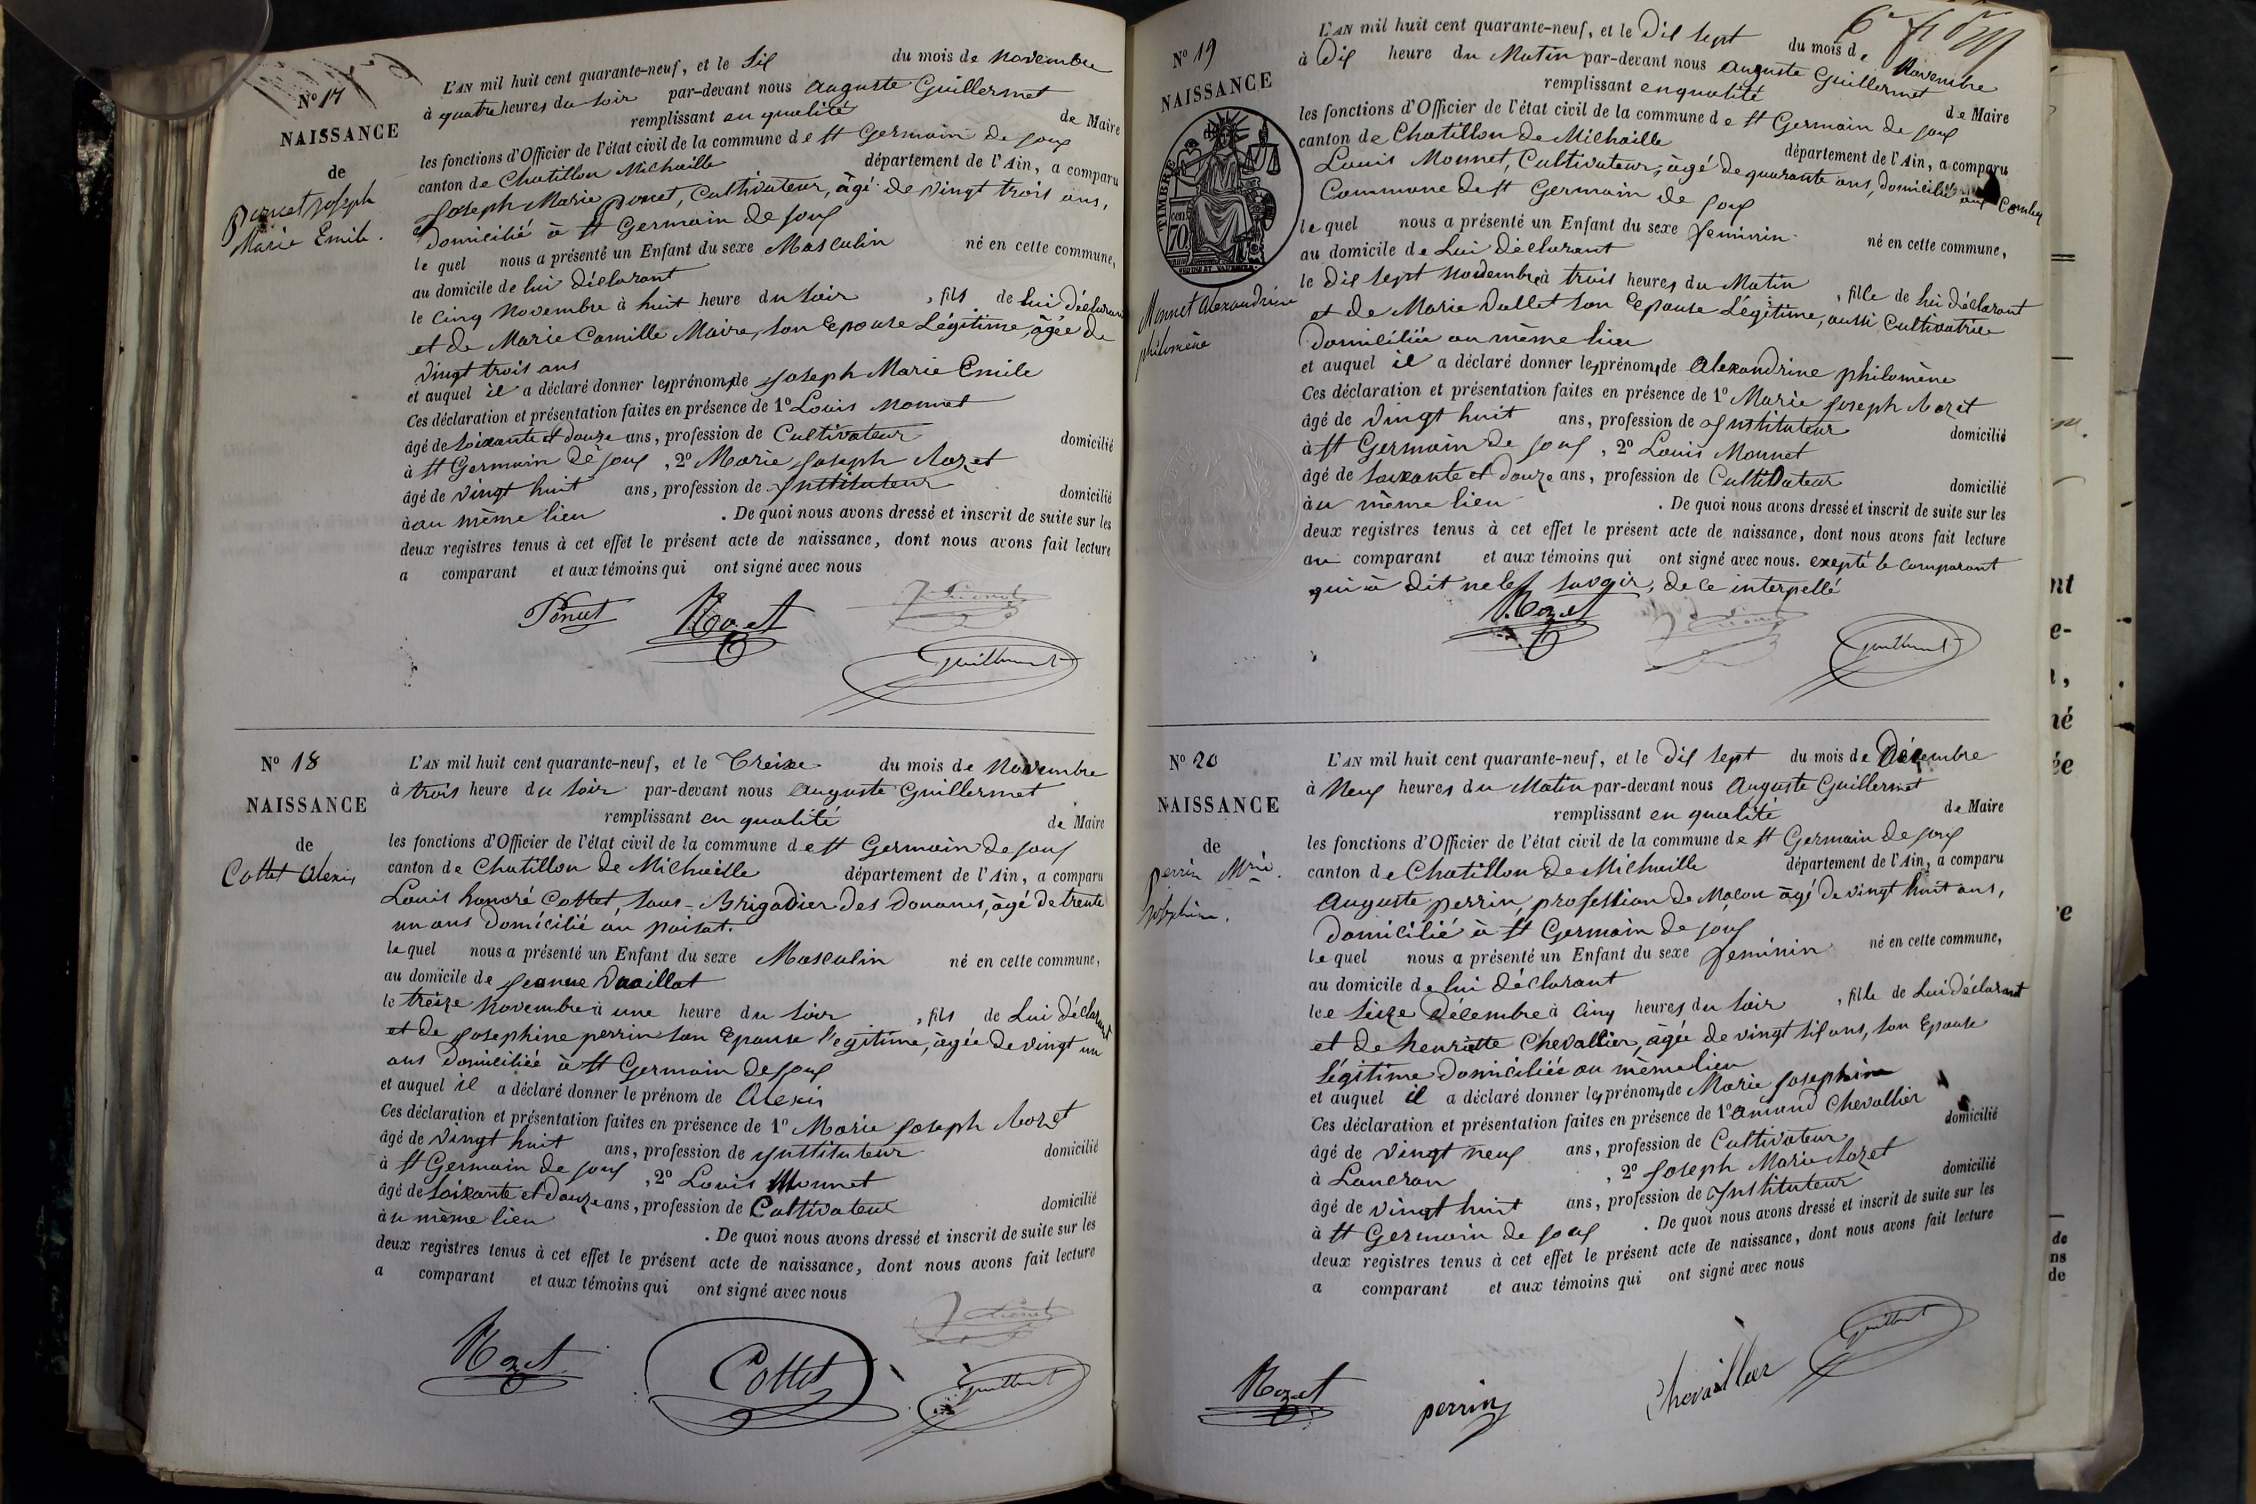 N° 17
NAISSANCE
de
pernet joseph
Marie Emile.
L'AN mil huit cent quarante-neuf, et le Six du mois de novembre
à quatre heures du soir par-devant nous auguste Guillermet
remplissant en qualité de Maire
les fonctions d'Officier de l'état civil de la commune de St Germain de joux
canton de Chatillon Michaille département de l'Ain, a comparu
joseph Marie ponet, Cultivateur, âgé de vingt trois ans,
domicilié à St Germain de joux
le quel nous a présenté un Enfant du sexe Masculin né en cette commune,
au domicile de lui déclarant
le cinq novembre à huit heure du soir, fils de lui déclarant
et de Marie Camille Maire, son Epouse Légitime, âgée de
vingt trois ans
et auquel il a déclaré donner les prénoms de joseph Marie Emile
Ces déclaration et présentation faites en présence de 1° Louis Monnet
âgé de soixante et douze ans, profession de Cultivateur domicilié
à St Germain de joux, 2° Marie joseph Rozet
âgé de vingt huit ans, profession de Instituteur domicilié
à au même lieu. De quoi nous avons dressé et inscrit de suite sur les
deux registres tenus à cet effet le présent acte de naissance, dont nous avons fait lecture
a comparant et aux témoins qui ont signé avec nous
Rozet
Guillermet
N° 18
NAISSANCE
de
Cottet Alexis
L'AN mil huit cent quarante-neuf, et le Treize du mois de Novembre
à trois heure du soir par-devant nous auguste Guillermet
remplissant en qualité de Maire
les fonctions d'Officier de l'état civil de la commune de St Germain de joux
canton de Chatillon de Michaille département de l'Ain, a comparu
Louis honoré Cottet, sous-Brigadier des Douanes, âgé de trente
un ans domicilié au poisat.
le quel nous a présenté un Enfant du sexe Masculin né en cette commune,
au domicile de jeanne Vuaillat
le treize novembre à une heure du soir, fils de Lui déclarant
et de josephine perrin son Epouse légitime, âgée de vingt un
ans domiciliée à St Germain de joux
et auquel il a déclaré donner le prénom de Alexis
Ces déclaration et présentation faites en présence de 1° Marie joseph Rozet
âgé de vingt huit ans, profession de Instituteur domicilié
à St Germain de joux, 2° Louis Monnet
âgé de soixante et douze ans, profession de Cultivateur domicilié
à u même lieu. De quoi nous avons dressé et inscrit de suite sur les
deux registres tenus à cet effet le présent acte de naissance, dont nous avons fait lecture
a comparant et aux témoins qui ont signé avec nous
Rozet Cottet
Guillermet
N° 19
NAISSANCE
TIMBRE
70
Monnet Alexandrine
philomène
L'AN mil huit cent quarante-neuf, et le Dix sept du mois de Novembre
à Dix heure du Matin par-devant nous auguste Guillermet
remplissant en qualité de Maire
les fonctions d'Officier de l'état civil de la commune de St Germain de joux
canton de Chatillon de Michaille département de l'Ain, a comparu
Louis Monnet, Cultivateur, âgé de quarante ans, domicilié aux Combes
Commune de St Germain de joux
le quel nous a présenté un Enfant du sexe feminin né en cette commune,
au domicile de Lui déclarant
le dix sept novembre à trois heures du Matin, fille de lui déclarant
et de Marie Vallet son Epouse Légitime, aussi Cultivatrice
domiciliée au même lieu
et auquel il a déclaré donner les prénoms de Alexandrine philomène
Ces déclaration et présentation faites en présence de 1° Marie joseph Rozet
âgé de vingt huit ans, profession de Instituteur domicilié
à St Germain de joux, 2° Louis Monnet
âgé de soixante et douze ans, profession de Cultivateur domicilié
à u même lieu. De quoi nous avons dressé et inscrit de suite sur les
deux registres tenus à cet effet le présent acte de naissance, dont nous avons fait lecture
au comparant et aux témoins qui ont signé avec nous. exepté le comparant
qui a dit ne le savoir, de ce interpellé
Rozet
Guillermet
N° 20
NAISSANCE
de
perrin Mrie.
josephine.
L'AN mil huit cent quarante-neuf, et le dix sept du mois de Décembre
à Neuf heures du Matin par-devant nous Auguste Guillermet
remplissant en qualité de Maire
les fonctions d'Officier de l'état civil de la commune de St Germain de joux
canton de Chatillon de Michaille département de l'Ain, a comparu
Auguste perrin, profession de Maçon âgé de vingt huit ans,
domicilié à St Germain de joux
le quel nous a présenté un Enfant du sexe feminin né en cette commune,
au domicile de lui déclarant
le seize Décembre à cinq heures du soir, fille de Lui déclarant
et de henriette Chevallier, âgée de vingt six ans, son Epouse
Légitime domiciliée au même lieu
et auquel il a déclaré donner les prénoms de Marie josephine
Ces déclaration et présentation faites en présence de 1° amand Chevallier
âgé de vingt neuf ans, profession de Cultivateur domicilié
à Lancran, 2° joseph Marie Rozet
âgé de vingt huit ans, profession de Instituteur domicilié
à St Germain de joux. De quoi nous avons dressé et inscrit de suite sur les
deux registres tenus à cet effet le présent acte de naissance, dont nous avons fait lecture
a comparant et aux témoins qui ont signé avec nous
Rozet perrin Chevallier Guillermet